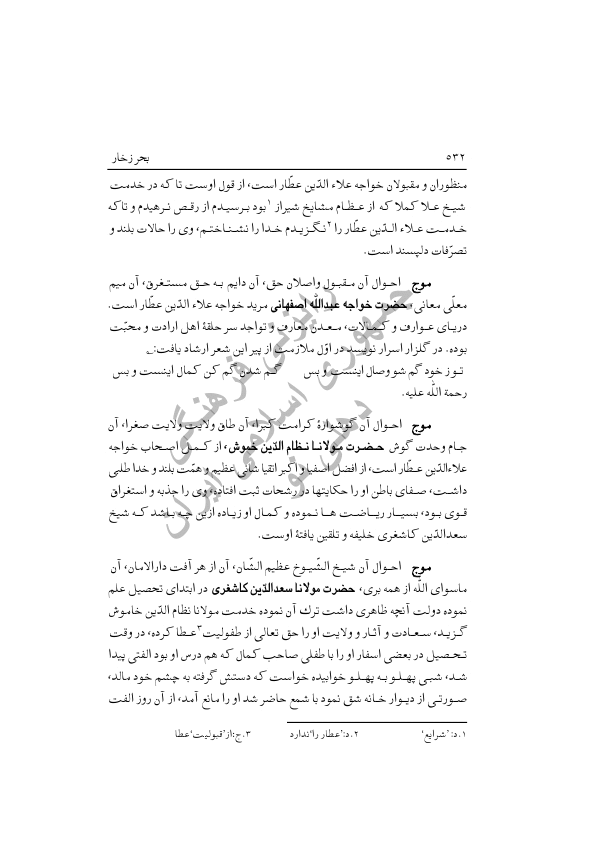 ۵۳۲ بحر زخار
منظوران و مقبولان خواجه علاء الدّین عطّار است، از قول اوست تا که در خدمت
شیخ علا کملا که از عظام مشایخ شیراز۱ بود برسیدم از رقص نرهیدم و تا که
خدمت علاء الدّین عطّار را۲ نگزیدم خدا را نشناختم، وی را حالات بلند و
تصرّفات دلپسند است.
موج احوال آن مقبول واصلان حق، آن دایم به حق مستغرق، آن میم
معلّی معانی، حضرت خواجه عبدالله اصفهانی مرید خواجه علاء الدّین عطّار است.
دریای عوارف و کمالات، معدن معارف و تواجد سر حلقهٔ اهل ارادت و محبّت
بوده. در گلزار اسرار نویسد در اوّل ملازمت از پیر این شعر ارشاد یافت:
تو ز خود گم شو وصال اینست و بس گم شدن گم کن کمال اینست و بس
رحمة الله علیه.
موج احوال آن گوشوارهٔ کرامت کبرا، آن طاق ولایت ولایت صغرا، آن
جام وحدت گوش حضرت مولانا نظام الدّین خموش، از کمل اصحاب خواجه
علاءالدّین عطّار است، از افضل اصفیا و اکبر اتقیا شانی عظیم و همّت بلند و خدا طلبی
داشت، صفای باطن او را حکایتها در رشحات ثبت افتاده، وی را جذبه و استغراق
قوی بود، بسیار ریاضت ها نموده و کمال او زیاده ازین چه باشد که شیخ
سعدالدّین کاشغری خلیفه و تلقین یافتهٔ اوست.
موج احوال آن شیخ الشّیوخ عظیم الشّان، آن از هر آفت دارالامان، آن
ماسوای الله از همه بری، حضرت مولانا سعدالدّین کاشغری در ابتدای تحصیل علم
نموده دولت آنچه ظاهری داشت ترك آن نموده خدمت مولانا نظام الدّین خاموش
گزید، سعادت و آثار و ولایت او را حق تعالی از طفولیت۳ عطا کرده، در وقت
تحصیل در بعضی اسفار او را با طفلی صاحب کمال که هم درس او بود الفتی پیدا
شد، شبی پهلو به پهلو خوابیده خواست که دستش گرفته به چشم خود مالد،
صورتی از دیوار خانه شق نمود با شمع حاضر شد او را مانع آمد، از آن روز الفت
۱.د:'شرایع' ۲.د:'عطار را'ندارد ۳.ج:از'قبولیت'عطا
جمهوری اسلامی ایران
رایزنی فرهنگی
دهلی نو